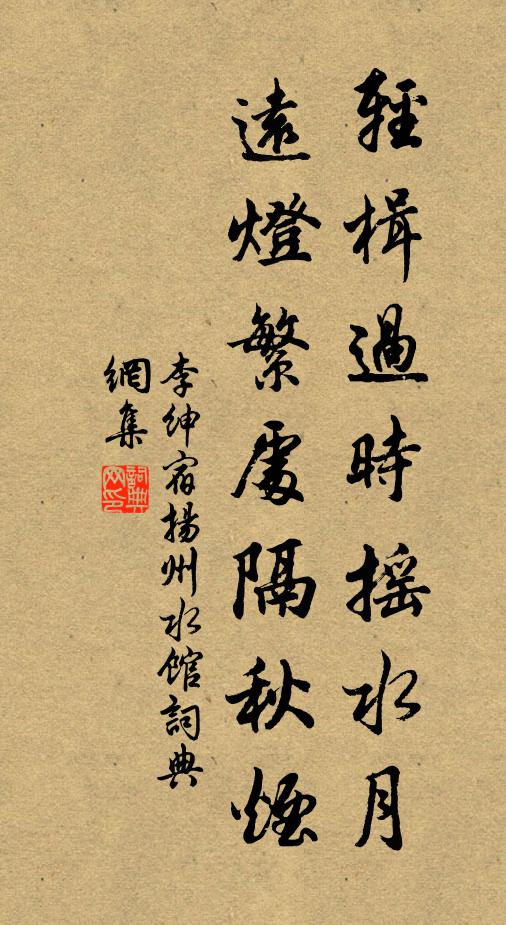 輕楫過時搖水月
遠燈繁處隔秋煙
李紳宿揚州水館詞典
網集
詞典
网印